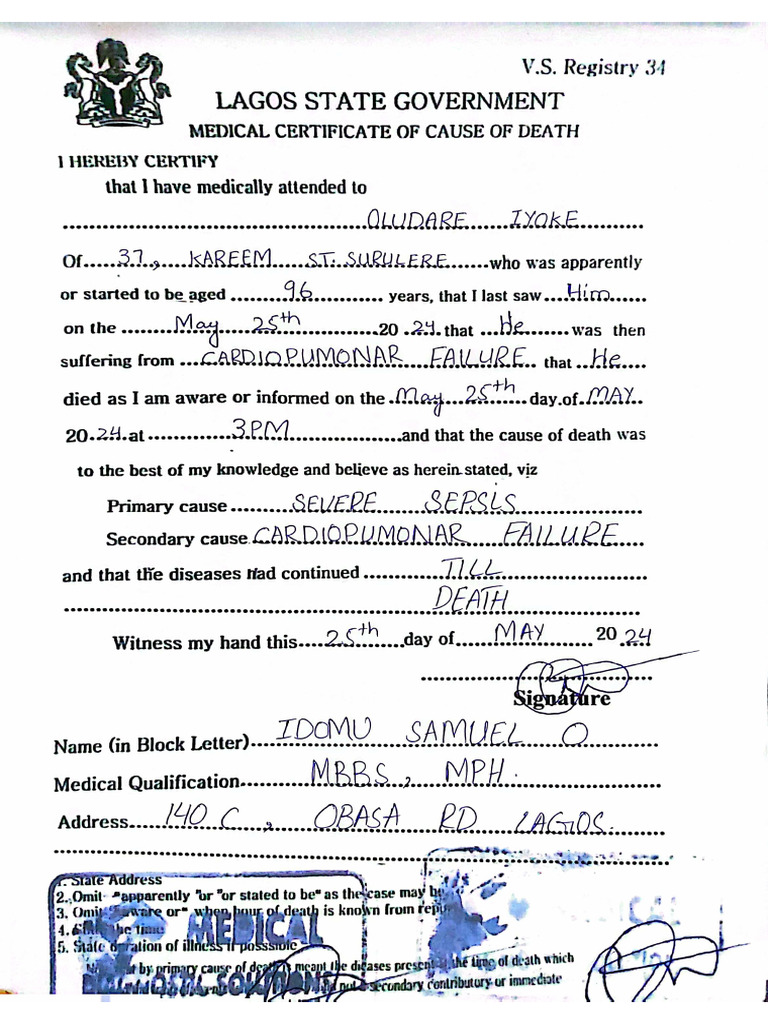 V.S. Registry 34
LAGOS STATE GOVERNMENT
MEDICAL CERTIFICATE OF CAUSE OF DEATH
I HEREBY CERTIFY
that I have medically attended to
OLUDARE IYOKE
Of 37, KAREEM ST. SURULERE who was apparently
or started to be aged 96 years, that I last saw Him
on the May 25th 20 24 that He was then
suffering from CARDIOPUMONAR FAILURE that He
died as I am aware or informed on the May 25th day of MAY
20 24 at 3PM and that the cause of death was
to the best of my knowledge and believe as herein stated, viz
Primary cause SEVERE SEPSIS
Secondary cause CARDIOPUMONAR FAILURE
and that the diseases had continued TILL
DEATH
Witness my hand this 25th day of MAY 20 24
Signature
Name (in Block Letter) IDOMU SAMUEL O
Medical Qualification MBBS, MPH.
Address 140 C, OBASA RD LAGOS.
1. State Address
2. Omit "apparently "or "or stated to be" as the case may be
3. Omit "aware or" when hour of death is known from
4. the time
5. State duration of illness if posssible
MEDICAL
by primary cause of death is meant the dicases present at the time of death which
secondary contributory or immediate